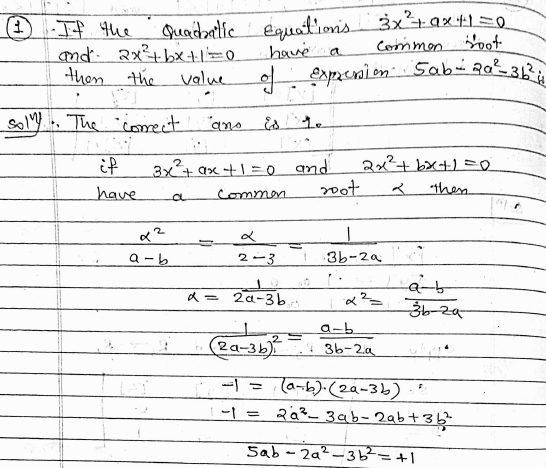 ① If the Quadratic Equations 3x²+ax+1=0
and 2x²+bx+1=0 have a common root
then the value of expression 5ab-2a²-3b² is
solⁿ:. The correct ans is 1.
if 3x²+ax+1=0 and 2x²+bx+1=0
have a common root α then
α²/(a-b) = α/(2-3) = 1/(3b-2a)
α = 1/(2a-3b) α² = (a-b)/(3b-2a)
1/(2a-3b)² = (a-b)/(3b-2a)
-1 = (a-b)·(2a-3b)
-1 = 2a²-3ab-2ab+3b²
5ab-2a²-3b² = +1